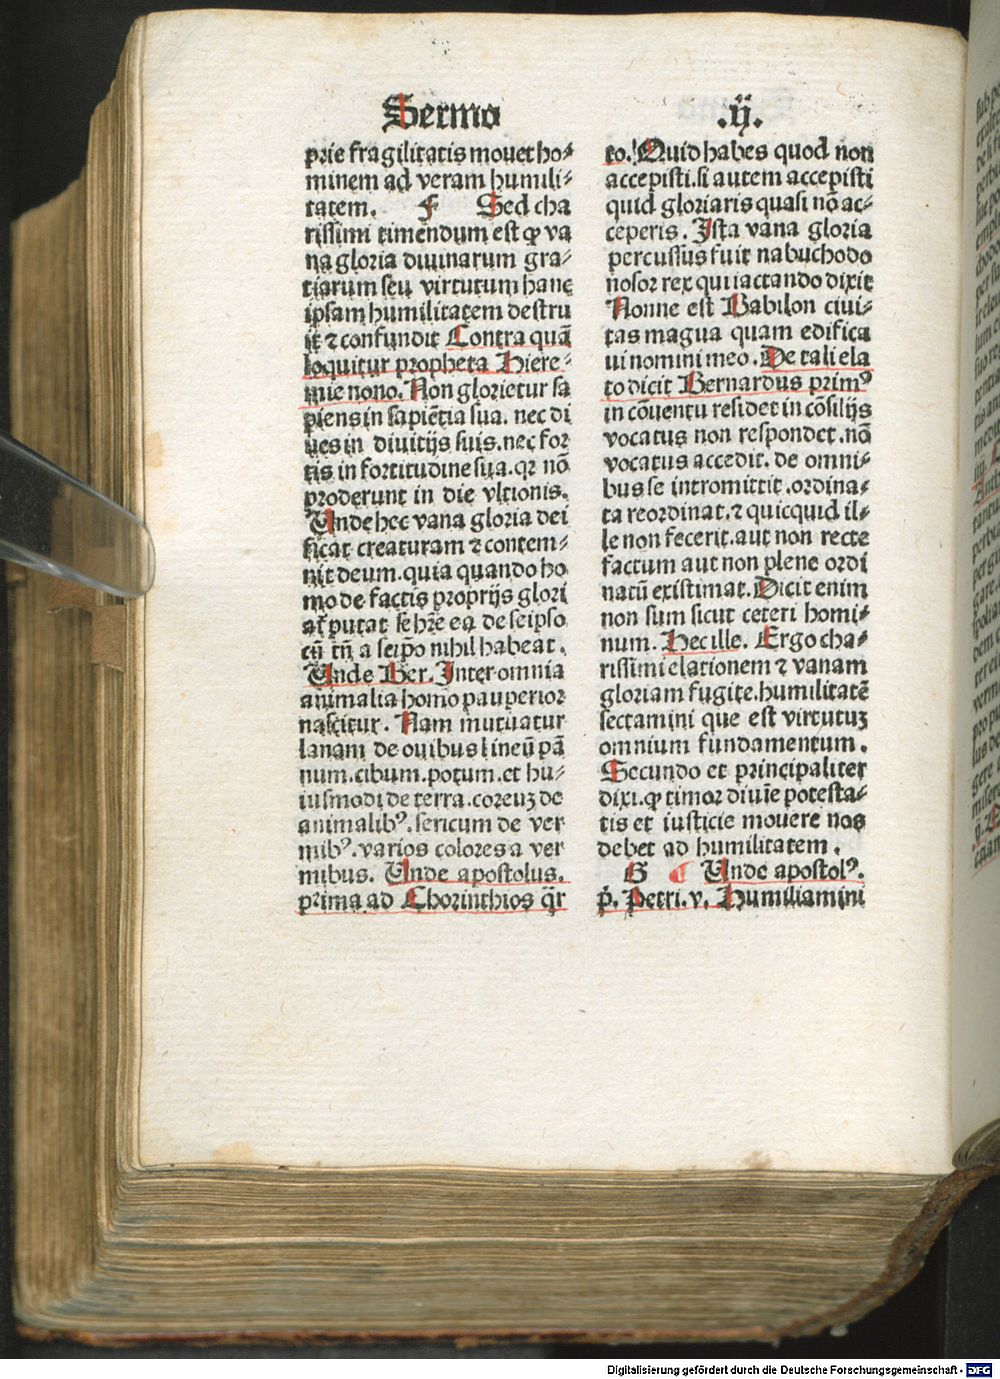 Sermo .ij.
prie fragilitatis mouet ho⸗
minem ad veram humili⸗
tatem. F Sed cha
rissimi timendum est ꝙ va
na gloria diuinarum gra⸗
tiarum seu virtutum hanc
ipsam humilitatem destru
it ⁊ confundit Contra quā
loquitur propheta Hiere⸗
mie nono. Non glorietur sa
piens in sapiētia sua. nec di
ues in diuitijs suis. nec for
tis in fortitudine sua. qr nō
proderunt in die vltionis.
Unde hec vana gloria dei
ficat creaturam ⁊ contem⸗
nit deum. quia quando ho
mo de factis proprijs glori
at᷑ putat se hr̄e ea de seipso
cū tn̄ a seip̄o nihil habeat.
Unde Ber. Inter omnia
animalia homo pauperior
nascitur. Nam mutuatur
lanam de ouibus lineū pā
num. cibum. potum. et hu⸗
iusmodi de terra. coreuꝫ de
animalibꝰ. sericum de ver
mibꝰ. varios colores a ver
mibus. Unde apostolus.
prima ad Chorinthios q̄r
to. Quid habes quod non
accepisti. si autem accepisti
quid gloriaris quasi nō ac⸗
ceperis. Ista vana gloria
percussus fuit nabuchodo
nosor rex qui iactando dixit
Nonne est Babilon ciui⸗
tas magua quam edifica
ui nomini meo. De tali ela
to dicit Bernardus primꝰ
in cōuentu residet in cōsilijs
vocatus non respondet. nō
vocatus accedit. de omni⸗
bus se intromittit. ordina⸗
ta reordinat. ⁊ quicquid il⸗
le non fecerit. aut non recte
factum aut non plene ordi
natū existimat. Dicit enim
non sum sicut ceteri homi⸗
num. Hec ille. Ergo cha⸗
rissimi elationem ⁊ vanam
gloriam fugite. humilitatē
sectamini que est virtutuꝫ
omnium fundamentum.
Secundo et principaliter
dixi. ꝙ timor diuīe potesta⸗
tis et iusticie mouere nos
debet ad humilitatem.
G ¶ Unde apostolꝰ.
p̄. Petri. v. Humiliamini
Digitalisierung gefördert durch die Deutsche Forschungsgemeinschaft - DFG